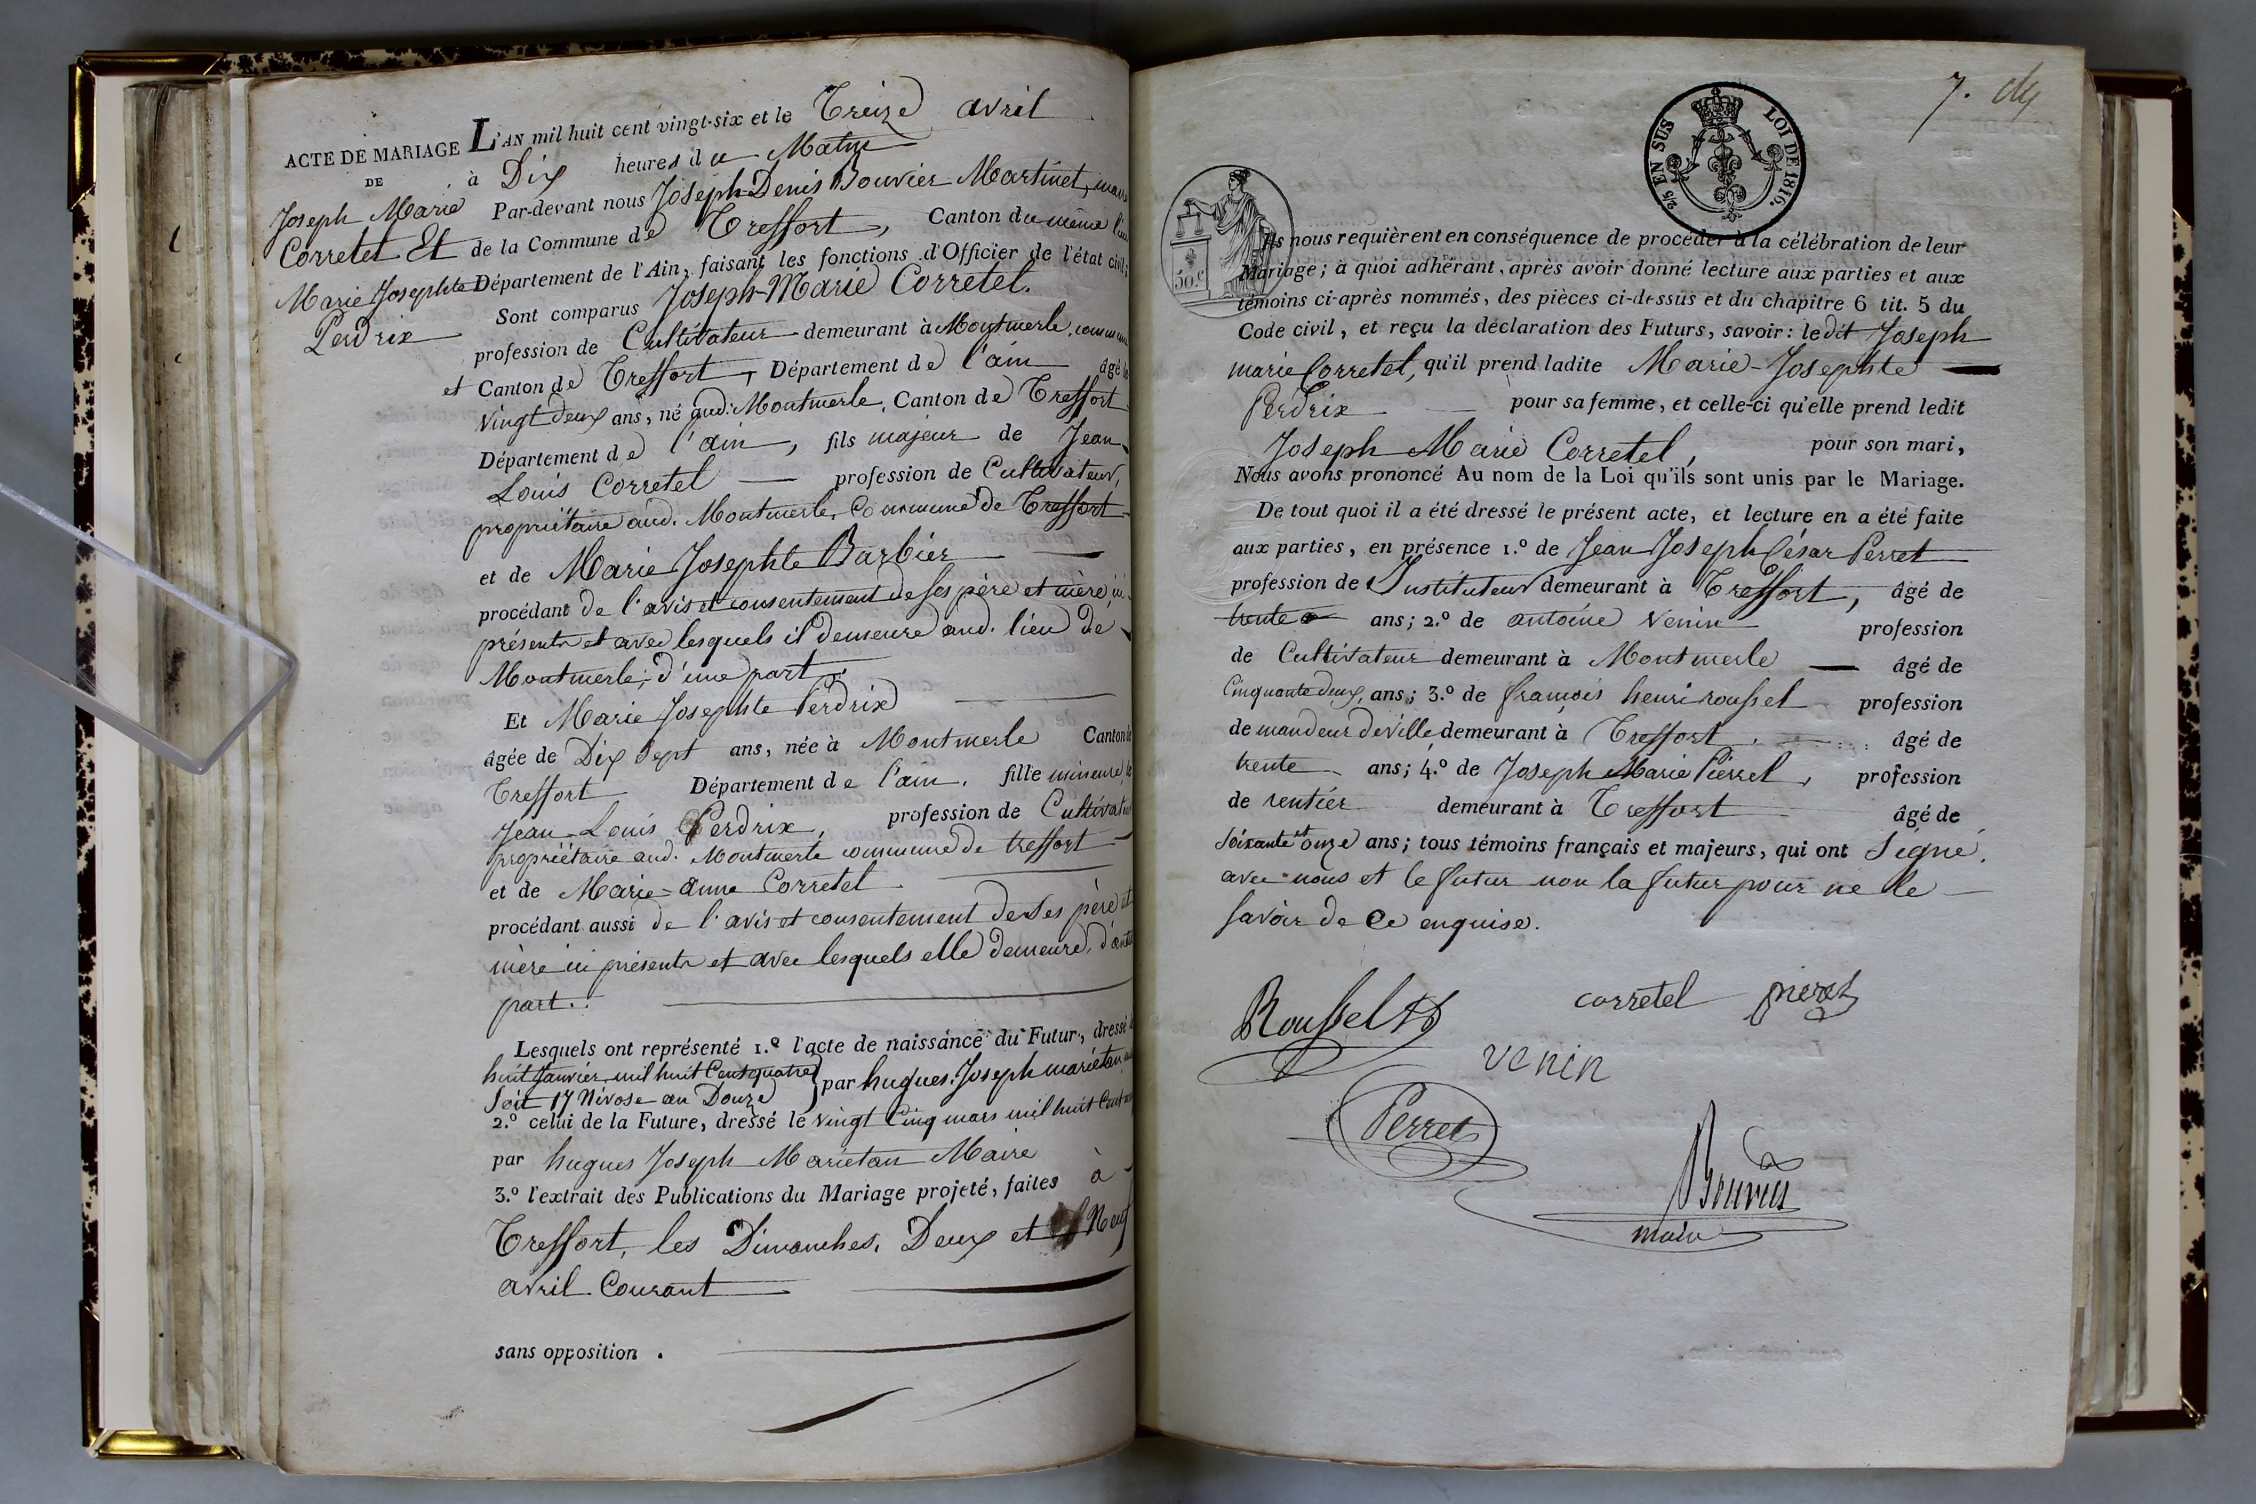 ACTE DE MARIAGE
DE
Joseph Marie
Corretel Et
Marie Josephte
Perdrix
L'AN mil huit cent vingt-six et le Treize avril
à Dix heures du Matin
Par-devant nous Joseph-Denis Bouvier Martinet, maire
de la Commune de Treffort, Canton du même lieu
Département de l'Ain, faisant les fonctions d'Officier de l'état civil;
Sont comparus Joseph-Marie Corretel.
profession de Cultivateur demeurant à Montmerle, commune
et Canton de Treffort, Département de l'ain âgé de
vingt deux ans, né aud. Montmerle, Canton de Treffort
Département de l'ain, fils majeur de Jean
Louis Corretel profession de Cultivateur,
propriétaire aud. Montmerle, Commune de Treffort
et de Marie Josephte Barbier
procédant de l'avis et consentement de ses père et mère, ici
présents et avec lesquels il demeure aud. lieu de
Montmerle; d'une part.
Et Marie Josephte Perdrix
âgée de Dix sept ans, née à Montmerle Canton de
Treffort Département de l'ain, fille mineure de
Jean-Louis Perdrix, profession de Cultivateur
propriétaire aud. Montmerle commune de treffort
et de Marie-anne Corretel
procédant aussi de l'avis et consentement de ses père et
mère ici présents et avec lesquels elle demeure, d'autre
part.
Lesquels ont représenté 1.º l'acte de naissance du Futur, dressé le
huit Janvier mil huit Cent quatre
soit 17 Nivose an Douze par hugues Joseph mariétan
2.º celui de la Future, dressé le vingt Cinq mars mil huit Cent
par hugues Joseph Marietan Maire
3.º l'extrait des Publications du Mariage projeté, faites à
Treffort, les Dimanches, Deux et Neuf
avril Courant
sans opposition.
7.
2/5 EN SUS
LOI DE 1816.
50.c
Ils nous requièrent en conséquence de procéder à la célébration de leur
Mariage; à quoi adhérant, après avoir donné lecture aux parties et aux
témoins ci-après nommés, des pièces ci-dessus et du chapitre 6 tit. 5 du
Code civil, et reçu la déclaration des Futurs, savoir: ledit Joseph
marie Corretel, qu'il prend ladite Marie-Josephte
Perdrix pour sa femme, et celle-ci qu'elle prend ledit
Joseph Marie Corretel, pour son mari,
Nous avons prononcé Au nom de la Loi qu'ils sont unis par le Mariage.
De tout quoi il a été dressé le présent acte, et lecture en a été faite
aux parties, en présence 1.º de Jean Joseph César Perret
profession de Instituteur demeurant à Treffort, âgé de
trente ans; 2.º de antoine Venin profession
de Cultivateur demeurant à Montmerle âgé de
Cinquante deux, ans; 3.º de françois henri roussel profession
de mandeur de ville demeurant à Treffort. âgé de
trente ans; 4.º de Joseph Marie Pierrel, profession
de rentier demeurant à Treffort âgé de
soixante et onze ans; tous témoins français et majeurs, qui ont signé.
avec nous et le futur non la futur pour ne le
savoir de ce enquise.
Roussel
corretel
venin
Perret
Bouvier
maire